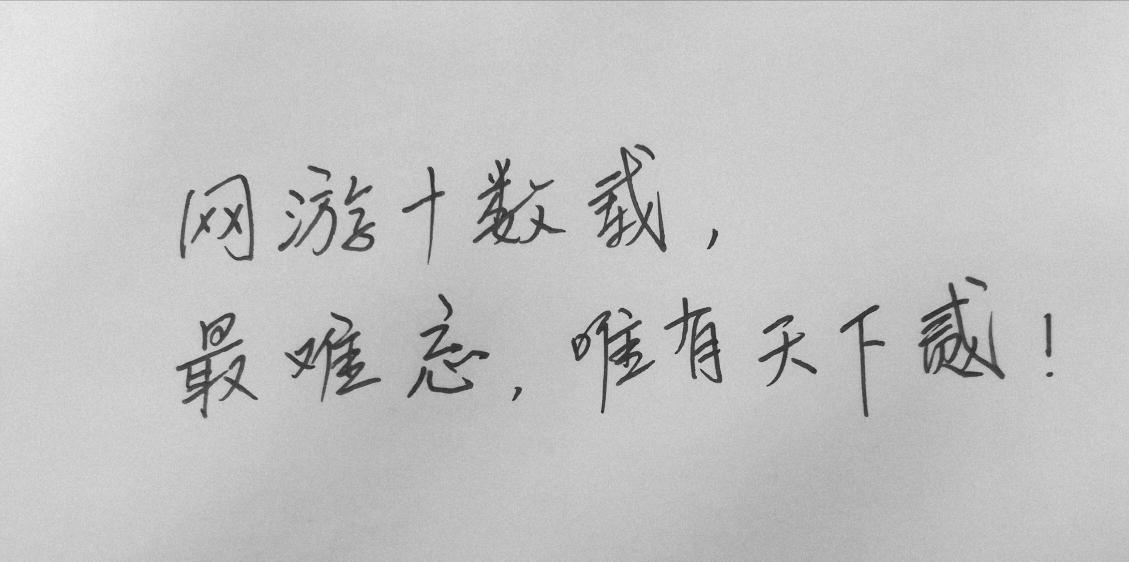 网游十数载，
最难忘，唯有天下贰！